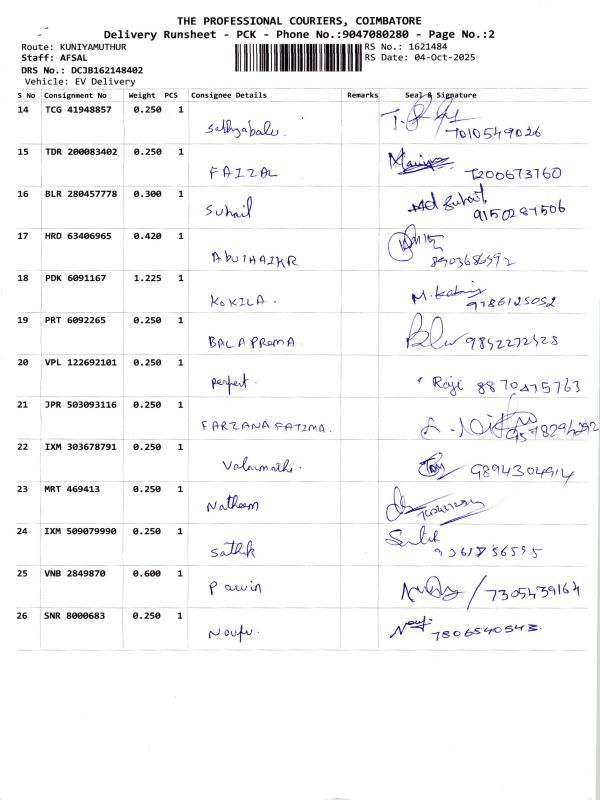 THE PROFESSIONAL COURIERS, COIMBATORE
Delivery Runsheet - PCK - Phone No.:9047080280 - Page No.:2
Route: KUNIYAMUTHUR RS No.: 1621484
Staff: AFSAL RS Date: 04-Oct-2025
DRS No.: DCJB162148402
Vehicle: EV Delivery
S No Consignment No Weight PCS Consignee Details Remarks Seal & Signature
14 TCG 41948857 0.250 1 Sathyabalu. 7010549026
15 TDR 200083402 0.250 1 FAIZAL 7200673760
16 BLR 280457778 0.300 1 Suhail Md Suhail 9150287506
17 HRD 63406965 0.420 1 ABUTHAIKR 8903686592
18 PDK 6091167 1.225 1 KOKILA. 9786125052
19 PRT 6092265 0.250 1 BALA PREMA. 9842272528
20 VPL 122692101 0.250 1 perfect. Raji 8870475763
21 JPR 503093116 0.250 1 FARZANA FATIMA.
22 IXM 303678791 0.250 1 Valarmathi. 9894304914
23 MRT 469413 0.250 1 Natheem
24 IXM 509079990 0.250 1 Sathik
25 VNB 2849870 0.600 1 Pavin 7305439164
26 SNR 8000683 0.250 1 Noufu. Nouf. 7806540543.